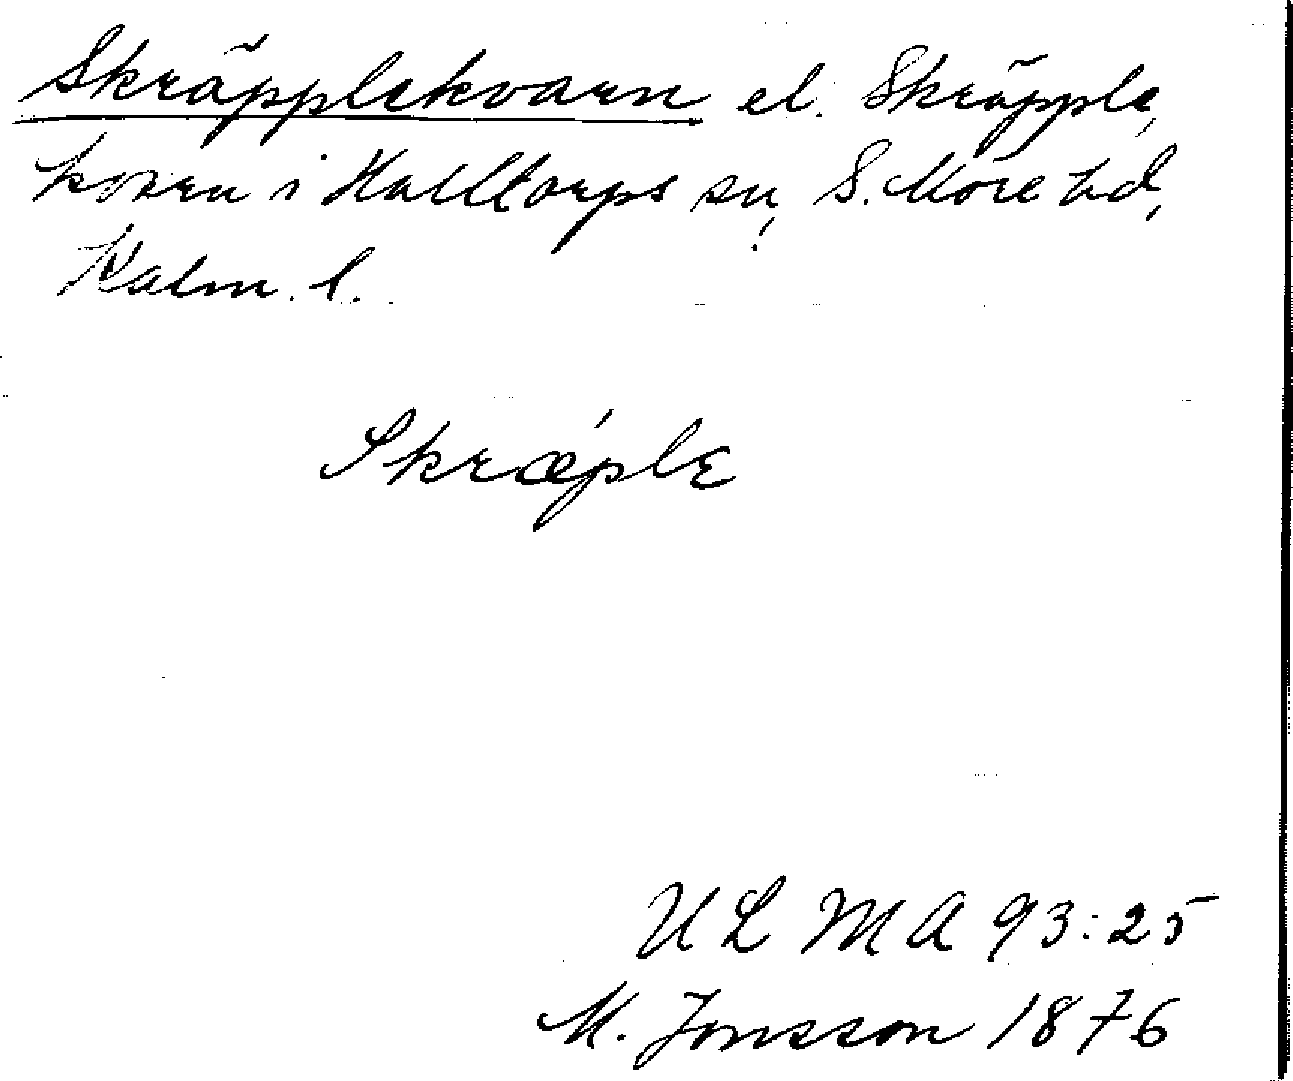 Skräpplekvarn el. Skräpple,
kvarn i Halltorps sn, S. Möre hd,
Kalm. l.
Skræple
ULMA 93:25
M. Jonsson 1876